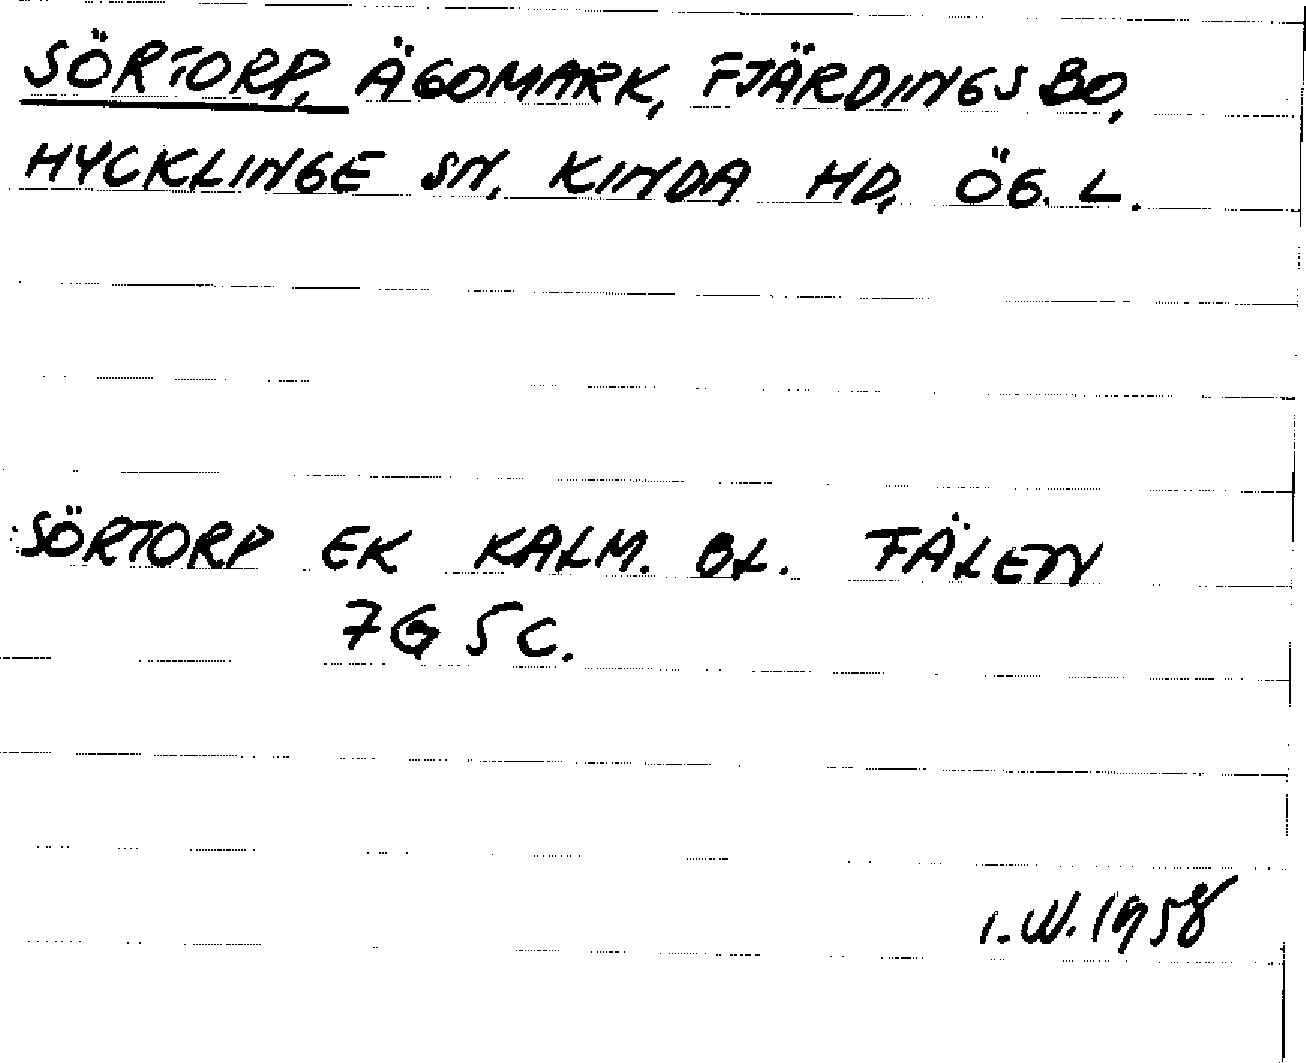 SÖRTORP, ÄGOMARK, FJÄRDINGSBO,
HYCKLINGE SN, KINDA HD, ÖG. L.
SÖRTORP EK KALM. BL. FÄLEN
7G 5C.
I.W. 1958